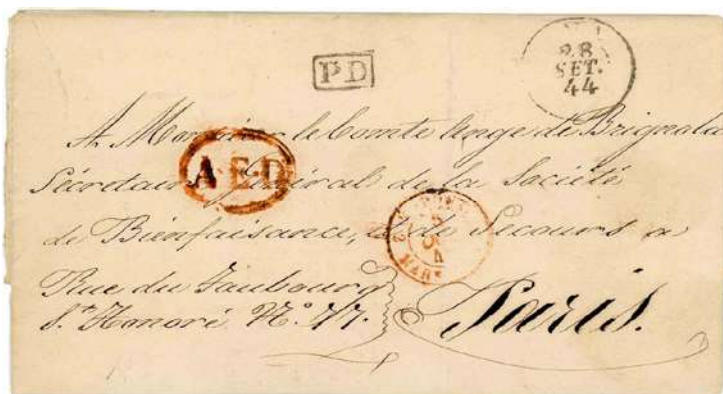 28
SET.
44
PD
A Monsieur le Comte Ange de Brignola
AED
Sécretaire Général de la Société
de Bienfaisance, et de Secours a
Rue du Faubourg
St. Honoré N.º 77.
Paris.